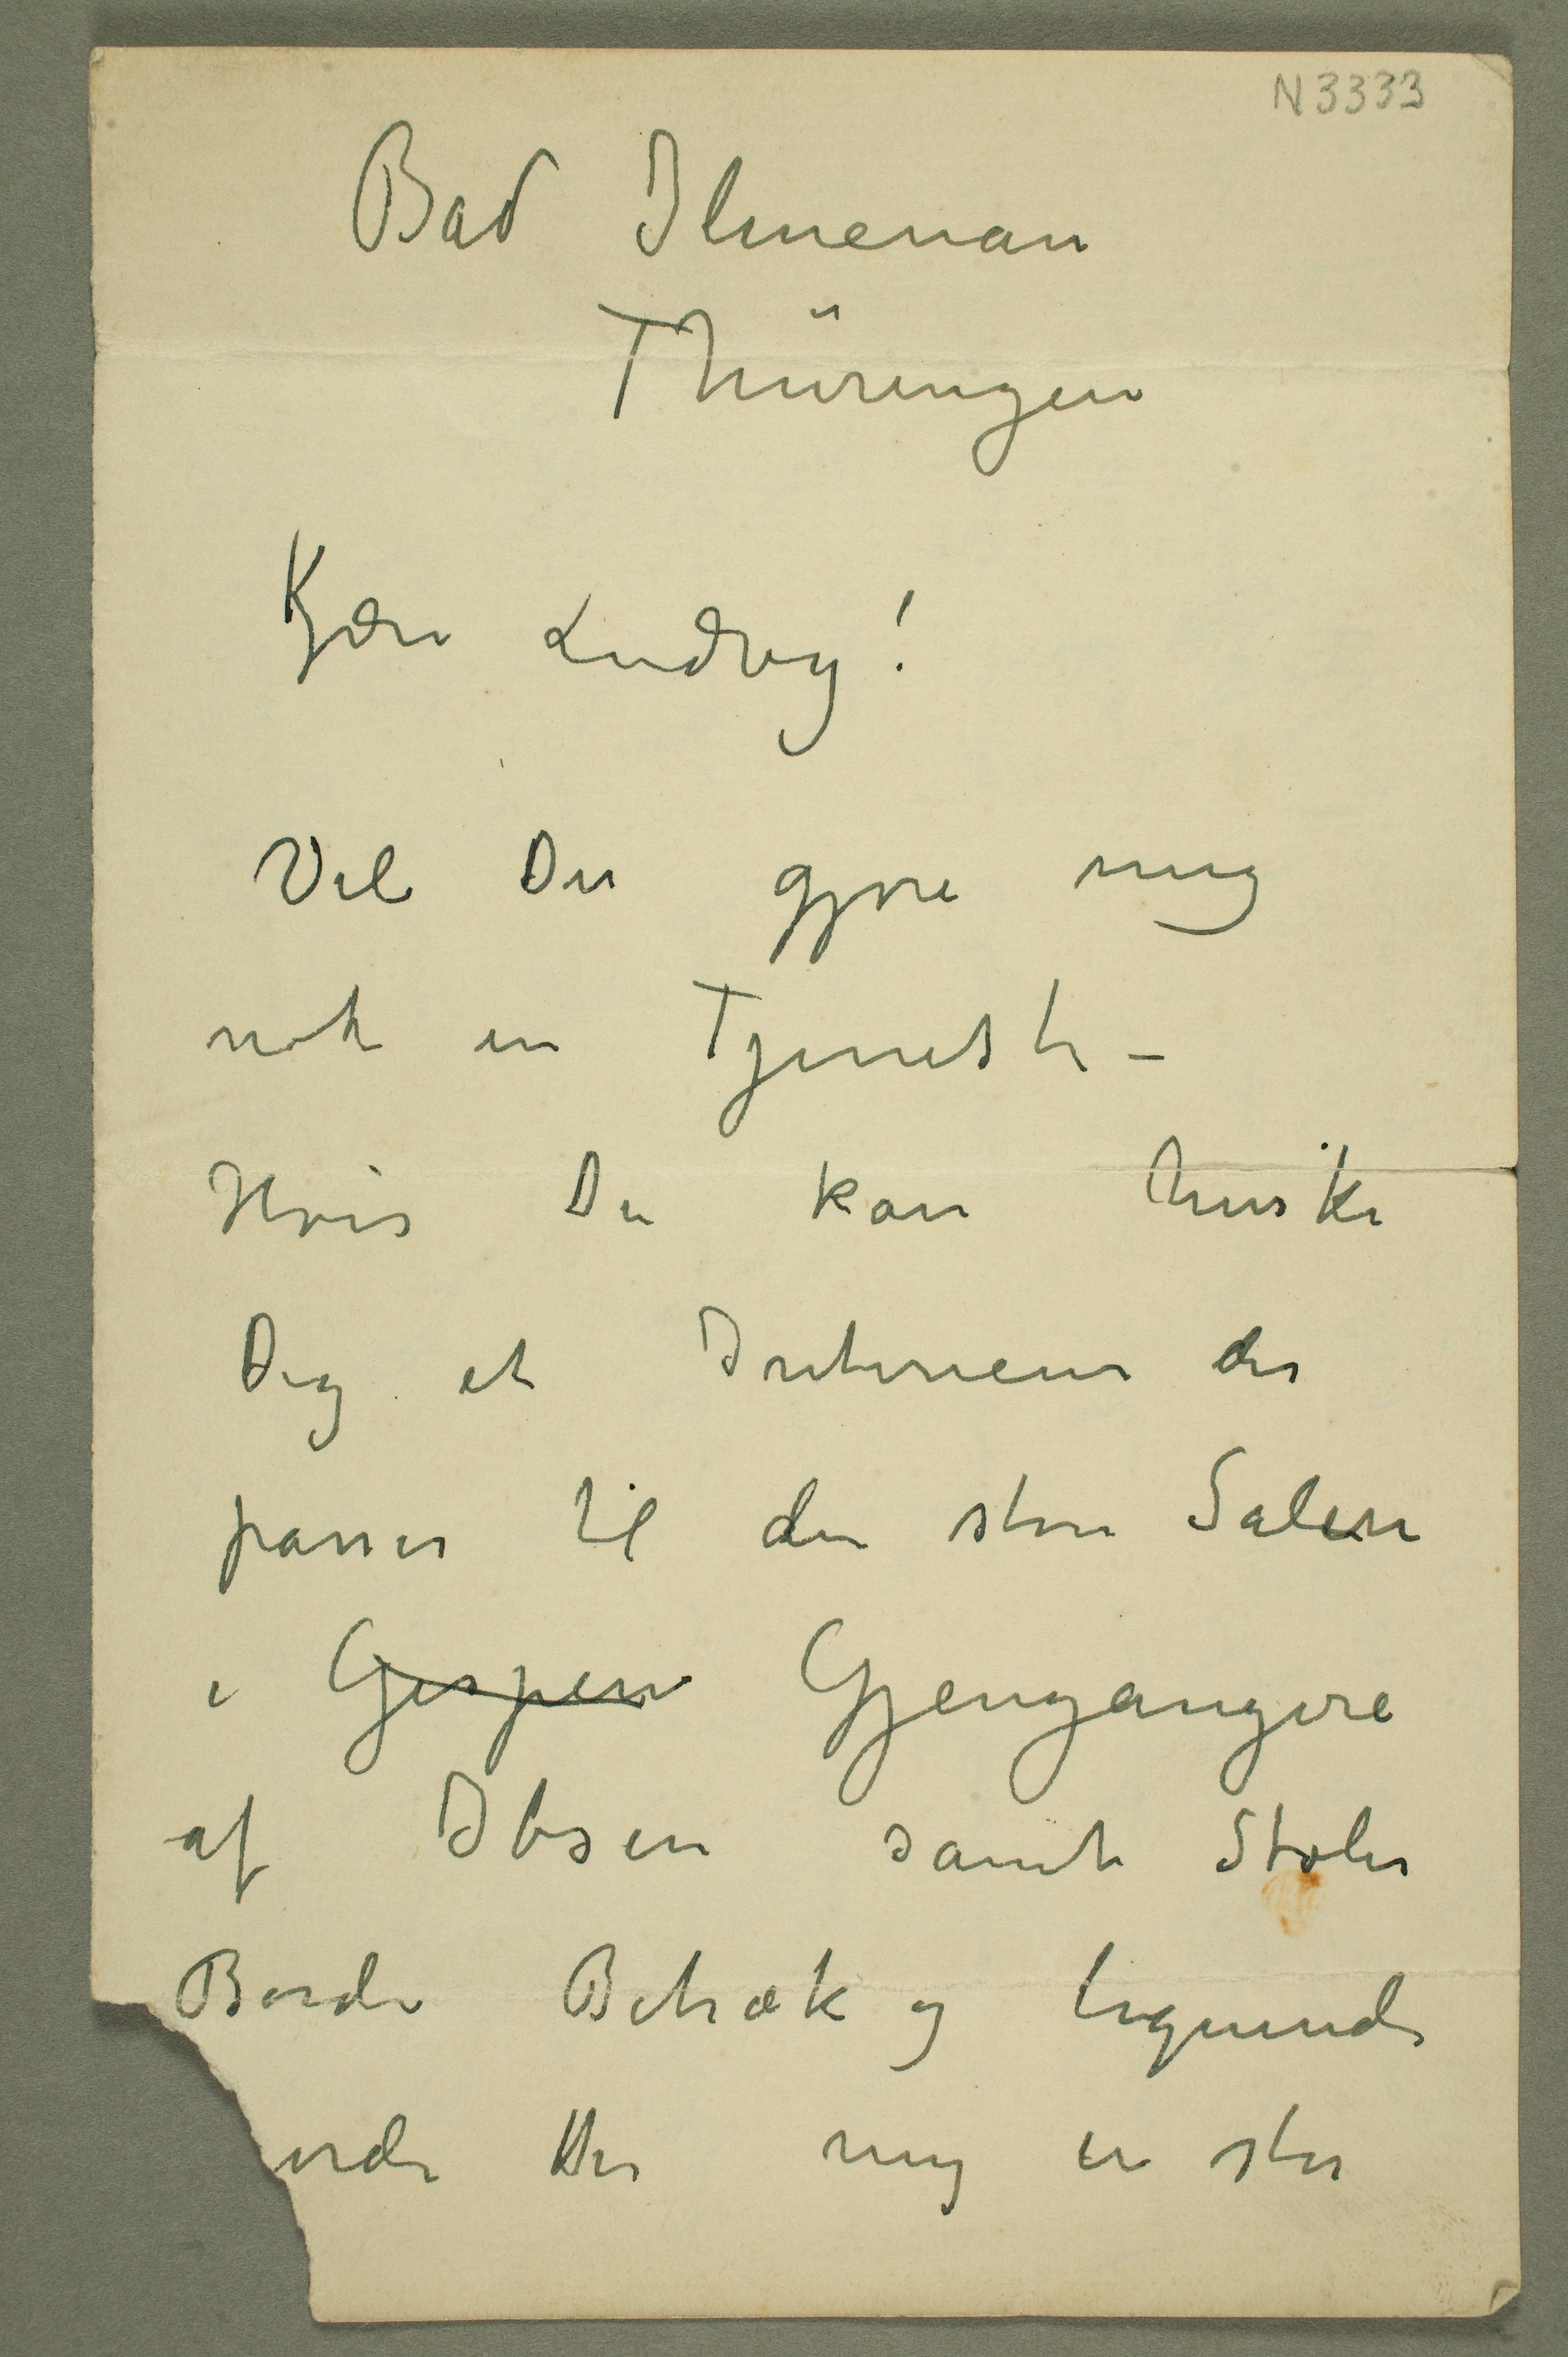 N 3333
Bad Ilmenau
Thüringen
Kjære Ludvig!
Vil Du gjøre mig
nok en Tjeneste –
Hvis Du kan huske
Dig et Interieur der
passer til den store Salen
i Gespen Gjengangere
af Ibsen samt Stoler
Borde Betræk og lignende
mig en stor